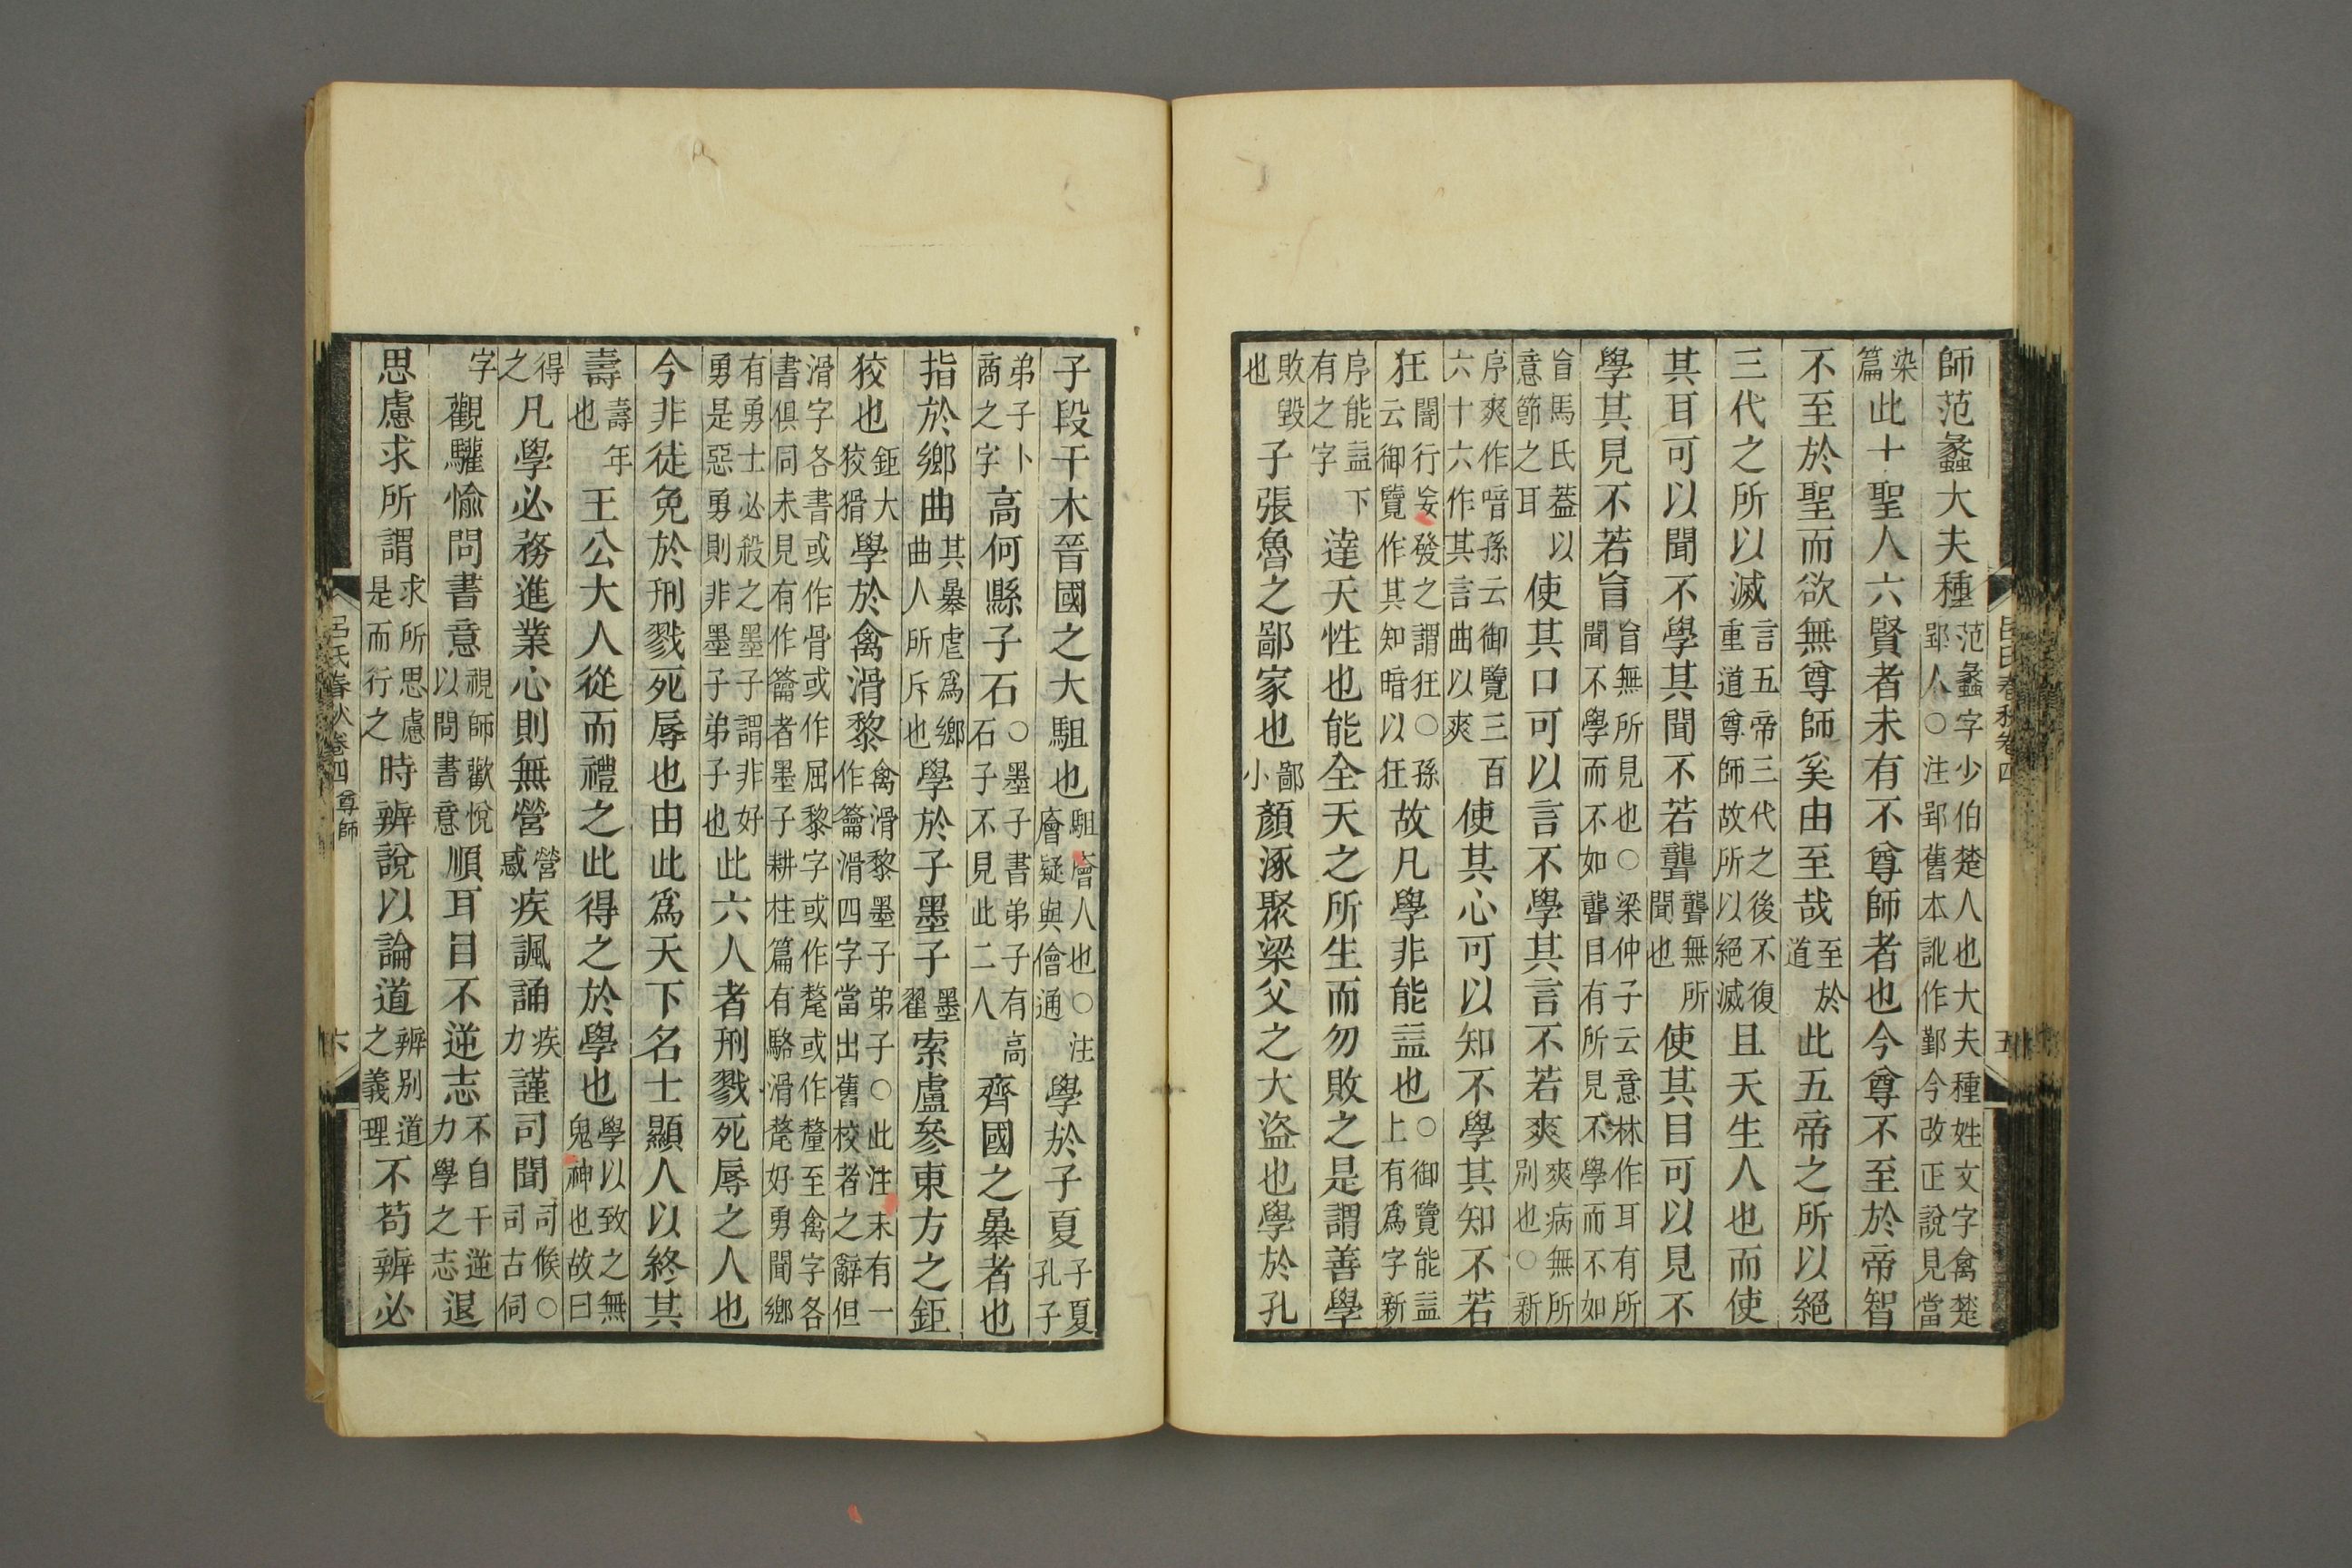 呂氏春秋卷四　五
師范蠡大夫種范蠡字少伯楚人也大夫種姓文字禽楚郢人○注郢舊本訛作鄞今改正說見當
染篇此十聖人六賢者未有不尊師者也今尊不至於帝智
不至於聖而欲無尊師奚由至哉至於道此五帝之所以絕
三代之所以滅言五帝三代之後不復重道尊師故所以絕滅且天生人也而使
其耳可以聞不學其聞不若聾聾無所聞也使其目可以見不
學其見不若盲盲無所見也○梁仲子云意林作耳有所聞不學而不如聾目有所見不學而不如
盲馬氏蓋以意節之耳使其口可以言不學其言不若爽爽病無所別也○新
序爽作喑孫云御覽三百六十六作其言曲以爽使其心可以知不學其知不若
狂闇行妄發之謂狂○孫云御覽作其知暗以狂故凡學非能益也○御覽能益上有爲字新
序能益下有之字達天性也能全天之所生而勿敗之是謂善學
敗毀也子張魯之鄙家也鄙小顏涿聚梁父之大盜也學於孔
子段干木晉國之大駔也駔廥人也○注廥疑與儈通學於子夏子夏孔子
弟子卜商之字高何縣子石○墨子書弟子有高石子不見此二人齊國之暴者也
指於鄉曲其暴虐爲鄉曲人所斥也學於子墨子墨翟索盧參東方之鉅
狡也鉅大狡猾學於禽滑黎禽滑黎墨子弟子○此注末有一作籥滑四字當出舊校者之辭但
滑字各書或作骨或作屈黎字或作氂或作釐至禽字各書俱同未見有作籥者墨子耕柱篇有駱滑氂好勇聞鄉
有勇士必殺之墨子謂非好勇是惡勇則非墨子弟子也此六人者刑戮死辱之人也
今非徒免於刑戮死辱也由此爲天下名士顯人以終其
壽壽年也王公大人從而禮之此得之於學也學以致之無鬼神也故曰
得之凡學必務進業心則無營營惑疾諷誦疾力謹司聞司候○司古伺
字觀驩愉問書意視師歡悅以問書意順耳目不逆志不自干逆力學之志退
思慮求所謂求所思慮是而行之時辨說以論道辨别道之義理不苟辨必
呂氏春秋卷四　尊師　六